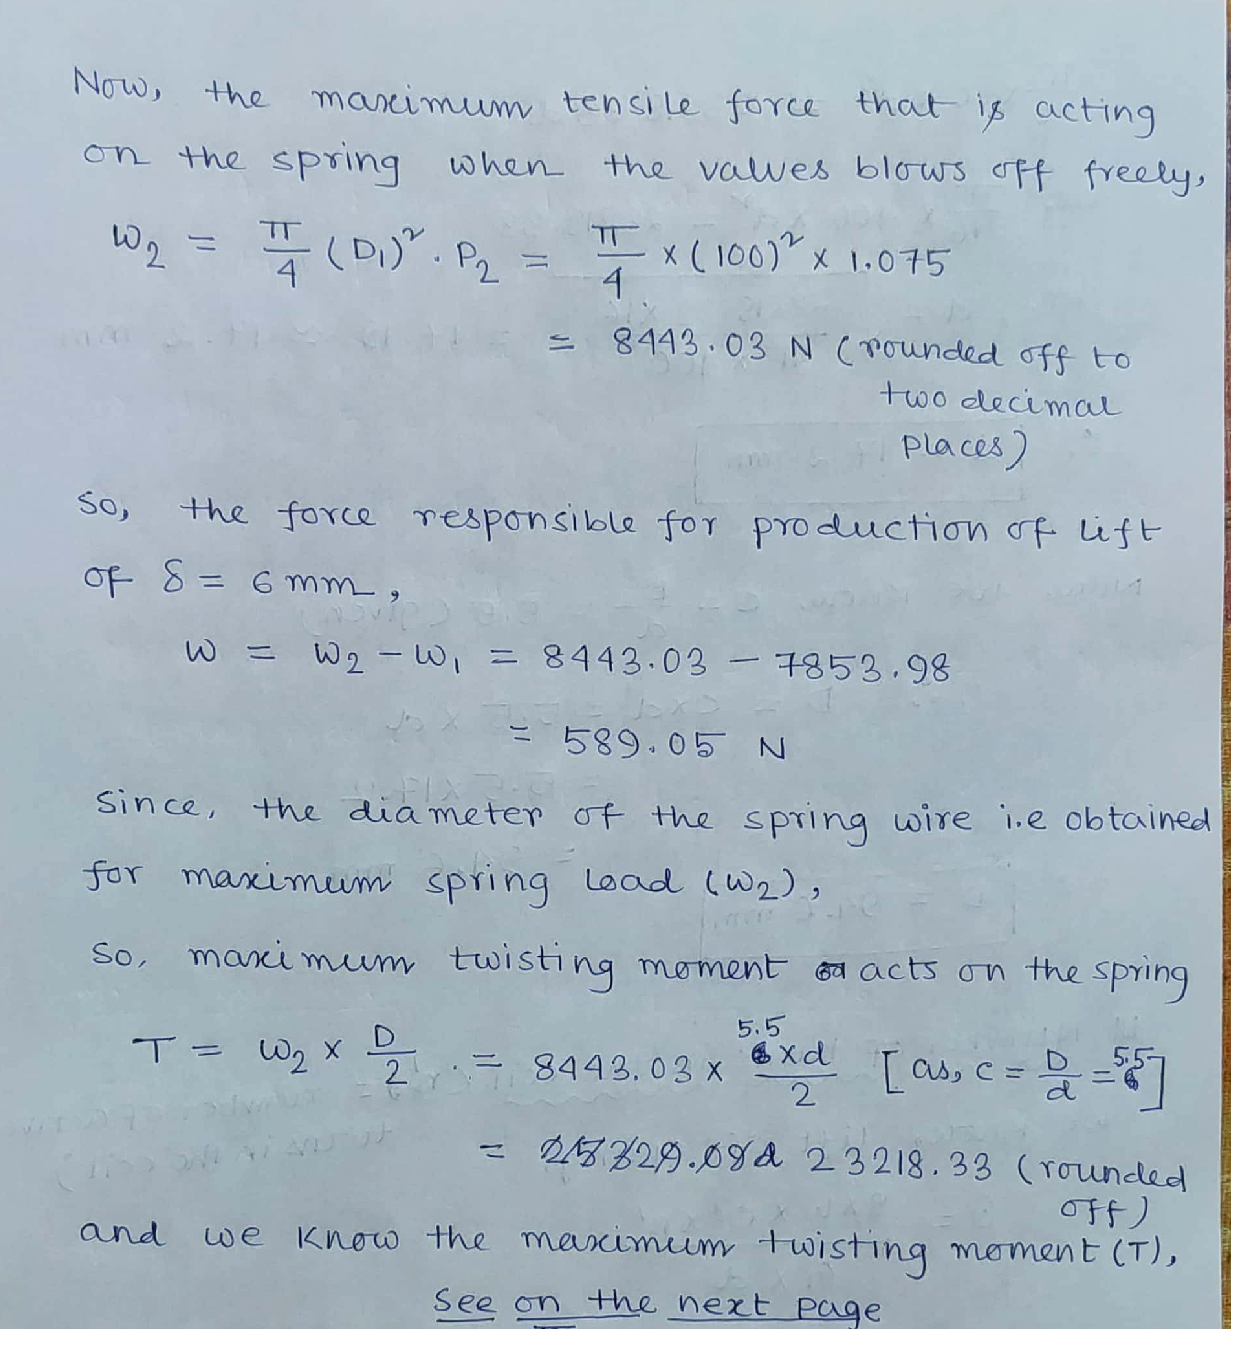 Now, the maximum tensile force that is acting
on the spring when the valves blows off freely,
W₂ = π/4 (D₁)² . P₂ = π/4 × (100)² × 1.075
= 8443.03 N (rounded off to
two decimal
places)
so, the force responsible for production of lift
of δ = 6 mm,
W = W₂ - W₁ = 8443.03 - 7853.98
= 589.05 N
since, the diameter of the spring wire i.e obtained
for maximum spring load (W₂),
so, maximum twisting moment acts on the spring
T = W₂ × D/2 = 8443.03 × 5.5 × d/2 [as, c = D/d = 5.5]
= 23218.33 (rounded
off)
and we know the maximum twisting moment (T),
see on the next page